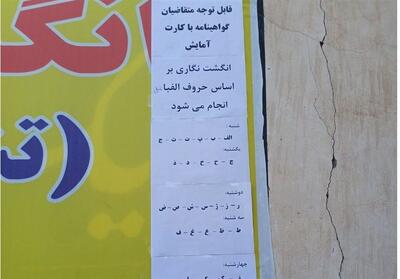 قابل توجه متقاضیان
گواهینامه با کارت
آمایش
انگشت نگاری بر
اساس حروف الفبا
انجام می شود
شنبه:
الف – ب – پ – ت – ث – ج
یکشنبه:
چ – ح – خ – د – ذ
دوشنبه:
ر – ز – ژ – س – ش – ص – ض
سه شنبه:
ط – ظ – ع – غ – ف
چهارشنبه: